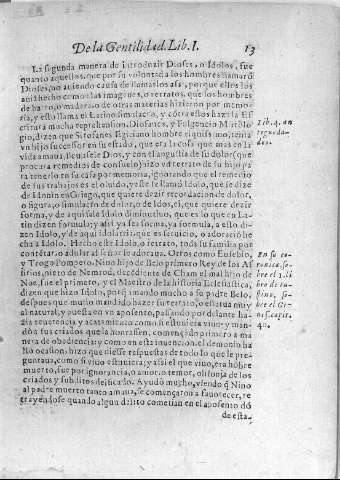 De la Gentilidad. Lib. I. 13
La segunda manera de introduzir Dioses, o Idolos, fue
quanto aquellos, que por su voluntad a los hombres llamarō
Dioses, no auiendo causa de llamarlos assi, porque ellos los
auia hecho como las imagines, o retratos, que los hombres
de barro, o madera, o de otras materias hizieron por memo-
ria, y esto llama el Latino simulacro, y cōtra estos haze la Es
critura mucha reprehension. Diofantes, y Fulgencio Mitolo
gio, dizen que Sirofanes Egipciano hombre riquissimo, tenia
vn hijo successor en su estado, que era la cosa que mas en la
vida amaua, fuesse Dios, y con el angustia de su dolor (que
procura remedios de consuelo) hizo vn retrato de su hijo pa
ra tenerlo en su casa por memoria, ignorando que el remedio
de sus trabajos es el oluido, y este se llamó Idolo, que se dize
de Idonin en Griego, que quiere dezir recordacion de dolor,
o figura, o simulacro de dolor, o de Idos, ei, que quiere dezir
forma, y de aqui sale Idolo diminutiuo, que es lo que en La-
tin dizen formula; y assi ya sea forma, ya formula, a esto di-
zen Idolo, y de aqui Idolatria, que es seruicio, o adoracō he
cha a Idolo. Hecho este Idolo, o retrato, toda su familia por
contētar, o adular al señor le adoraua. Otros como Eusebio,
y Trogo Pompeyo. Nino hijo de Belo primero Rey de los As
sirios, nieto de Nemrod, decēdiente de Cham el mal hijo de
Noe, fue el primero, y el Maestro de la historia Eclesiastica,
dizen que hizo Idolo, porq̄ amando mucho a su padre Belo,
despues que murio mandado hazer su retrato, o estatua muy
al natural, y puesta en vn aposento, passando por delante ha-
zia reuerencia, y acatamiento como si estuuiera viuo, y man-
dōa sus criados que la honrassen, començādo primero a ma
nera de obediencia; y como en esta inuencion el demonio ha
llō ocasion, hizo que diesse respuestas de todo lo que le pre
guntaua, como si viuo estuuiera; y assi el que viuo, era hōbre
muerto, fue por ignorancia, o amor, o temor, o lisonja de los
criados y subditos deificado. Ayudó mucho, viendo q̄ Nino
al padre muerto tanto amaua, se començaron a fauorecer, te
trayendose quando algun delito cometian en el aposento dō
de esta-
Lib. 4. an
tegueda-
des.
En su co-
ronica, so-
bre el 2. li
bro de ru-
fino, so-
bre el Ge-
nes. capit.
40.